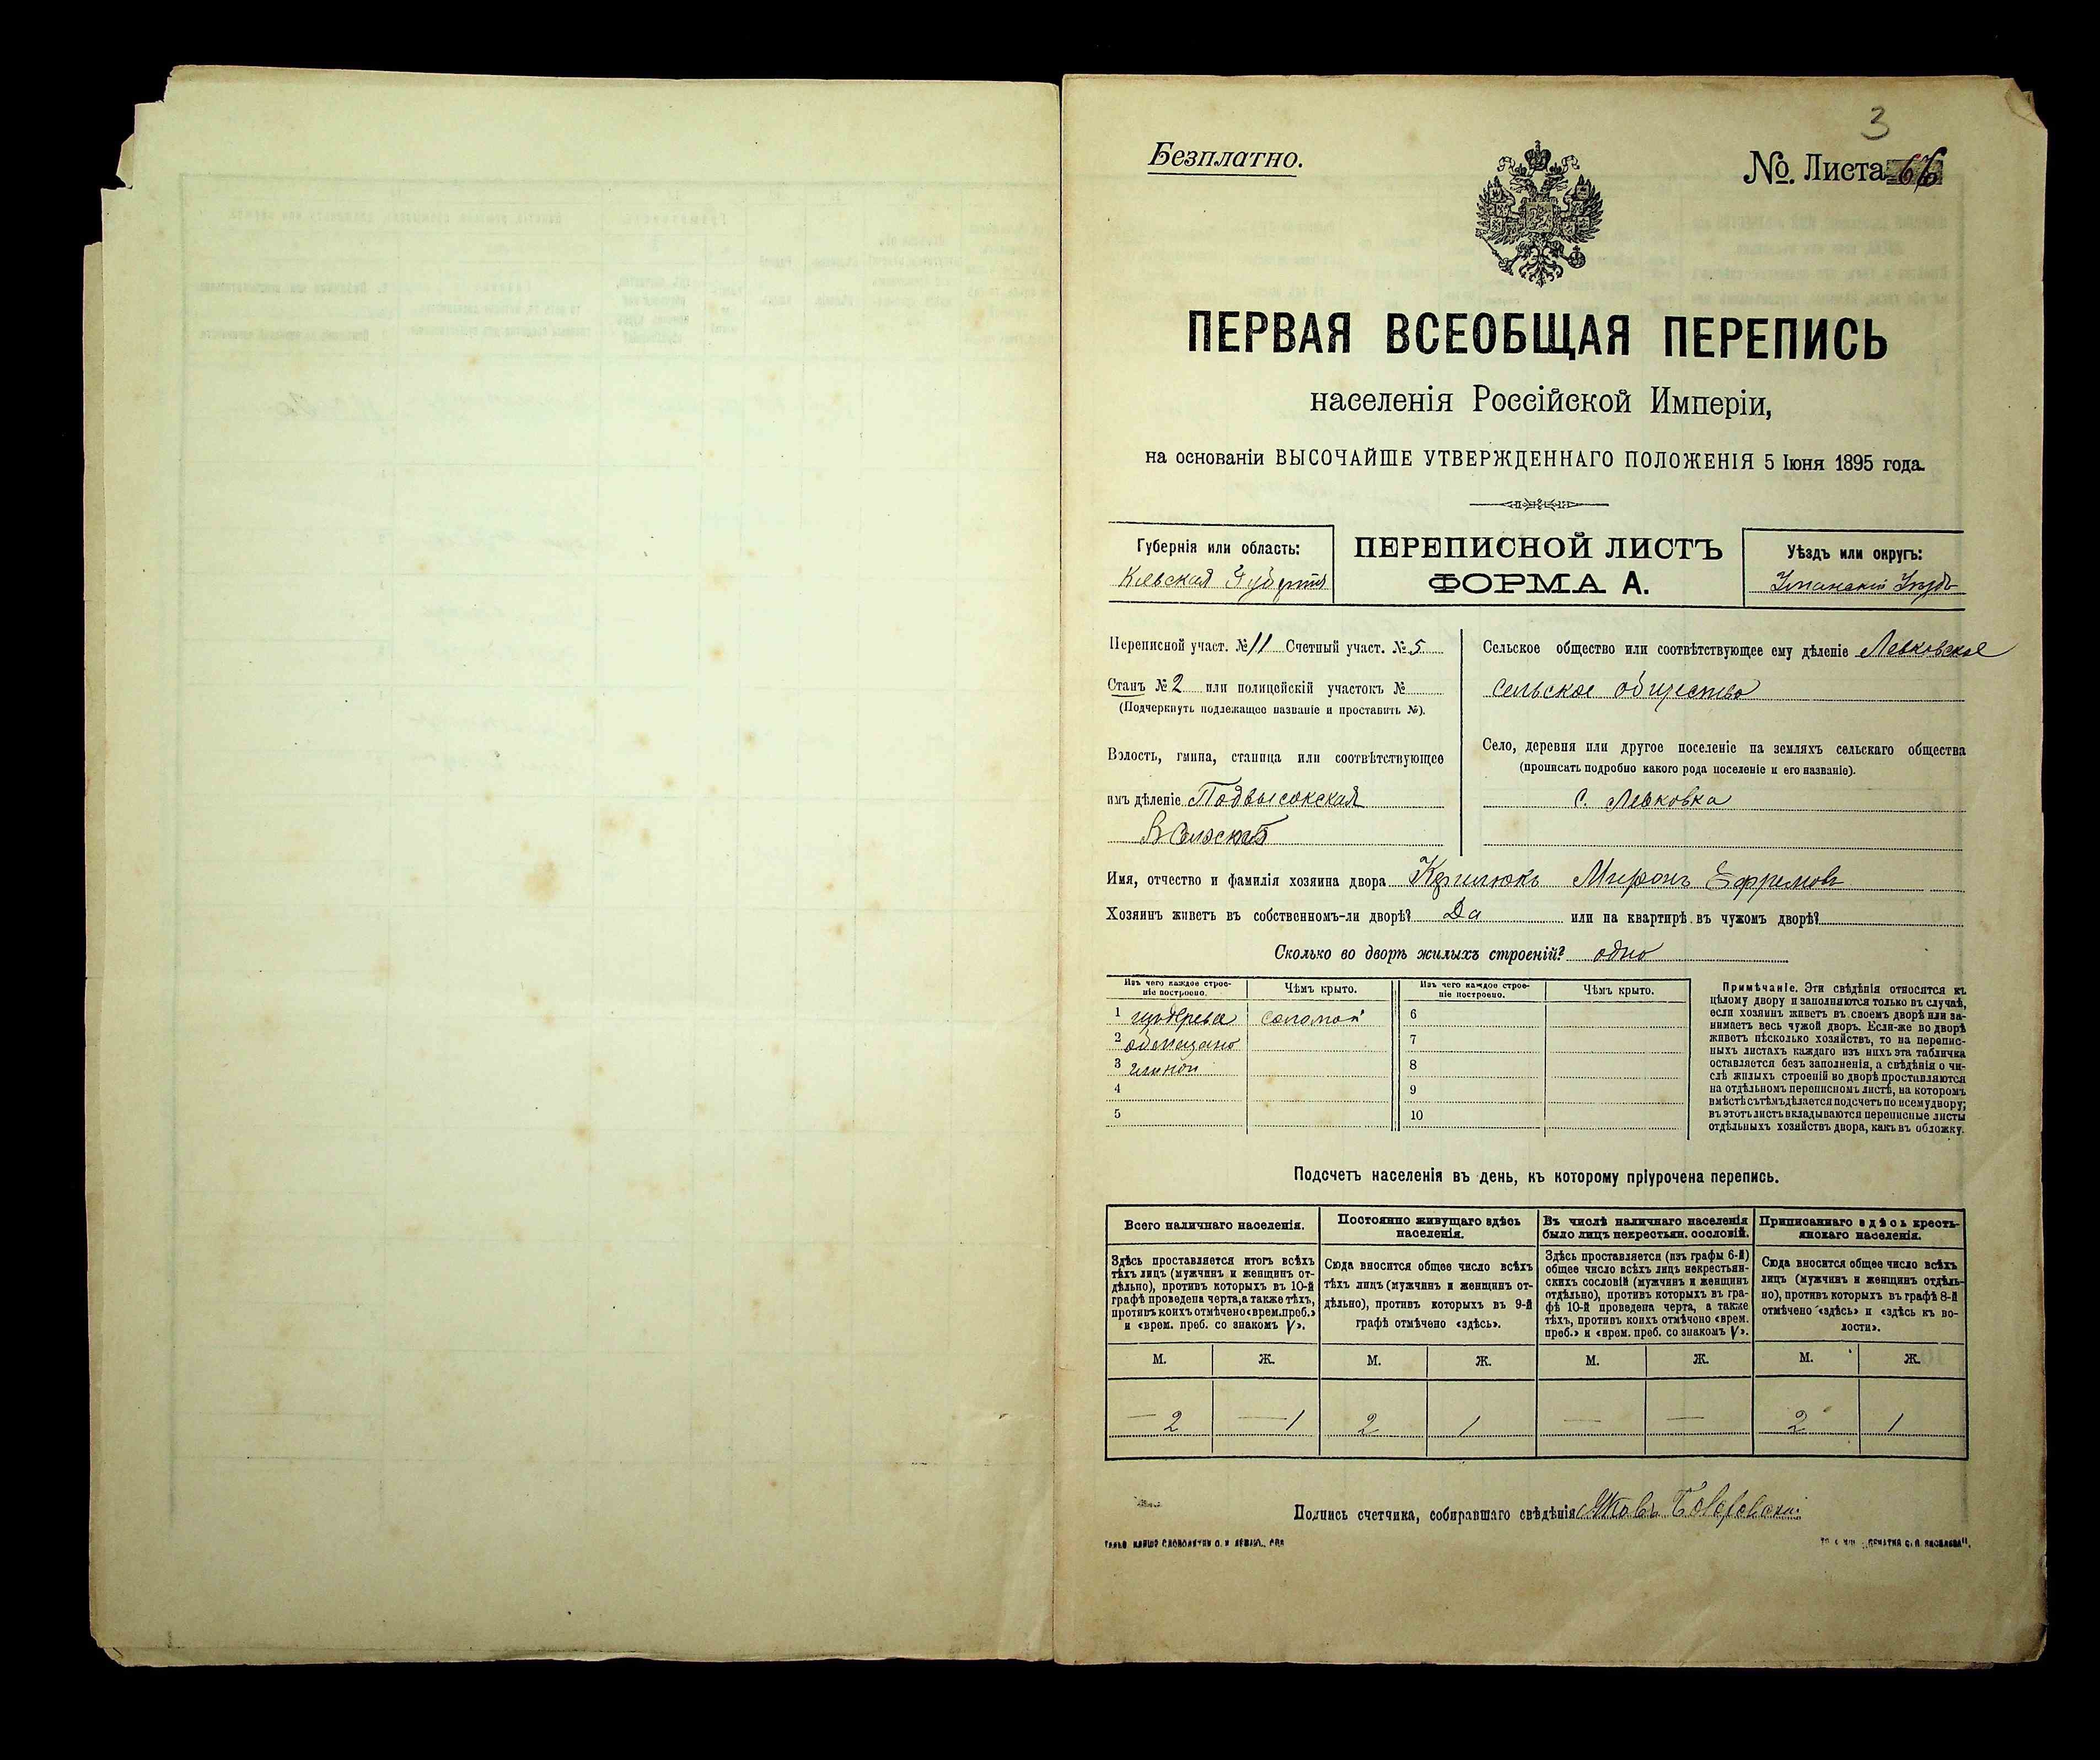 3
Безплатно.
No. Листа 66
ПЕРВАЯ ВСЕОБЩАЯ ПЕРЕПИСЬ
населенія Россійской Имперіи,
на основаніи ВЫСОЧАЙШЕ УТВЕРЖДЕННАГО ПОЛОЖЕНІЯ 5 Іюня 1895 года.
Губернія или область:
Кіевская Губернія
ПЕРЕПИСНОЙ ЛИСТЪ
ФОРМА А.
Уѣздъ или округъ:
Уманскій Уѣздъ
Переписной участ. № 11 Счетный участ. № 5
Станъ № 2 или полицейскій участокъ №
(Подчеркнуть подлежащее названіе и проставить №).
Волость, гмина, станица или соотвѣтствующее
имъ дѣленіе Подвысокская
Сельское общество или соотвѣтствующее ему дѣленіе Левковское
сельское общество
Село, деревня или другое поселеніе на земляхъ сельскаго общества
(прописать подробно какого рода поселеніе и его названіе).
с. Левковка
Имя, отчество и фамилія хозяина двора Миронъ Ефремовъ
Хозяинъ живетъ въ собственномъ-ли дворѣ? Да или на квартирѣ въ чужомъ дворѣ?
Сколько во дворѣ жилыхъ строеній? одно
Изъ чего каждое строе-
ніе построено.
Чѣмъ крыто.
Изъ чего каждое строе-
ніе построено.
Чѣмъ крыто.
1 изъ дерева соломой 6
2 обмазано 7
3 глиной 8
4 9
5 10
Примѣчаніе. Эти свѣдѣнія относятся къ
цѣлому двору и заполняются только въ случаѣ,
если хозяинъ живетъ въ своемъ дворѣ или за-
нимаетъ весь чужой дворъ. Если-же во дворѣ
живетъ нѣсколько хозяйствъ, то на перепис-
ныхъ листахъ каждаго изъ нихъ эта табличка
оставляется безъ заполненія, а свѣдѣнія о чи-
слѣ жилыхъ строеній во дворѣ проставляются
на отдѣльномъ переписномъ листѣ, на которомъ
вмѣстѣ съ тѣмъ дѣлается подсчетъ по всему двору;
въ этотъ листъ вкладываются переписные листы
отдѣльныхъ хозяйствъ двора, какъ въ обложку.
Подсчетъ населенія въ день, къ которому пріурочена перепись.
Всего наличнаго населенія.
Здѣсь проставляется итогъ всѣхъ
тѣхъ лицъ (мужчинъ и женщинъ от-
дѣльно), противъ которыхъ въ 10-й
графѣ проведена черта, а также тѣхъ,
противъ коихъ отмѣчено «врем. преб.»
и «врем. преб. со знакомъ V».
Постоянно живущаго здѣсь
населенія.
Сюда вносится общее число всѣхъ
тѣхъ лицъ (мужчинъ и женщинъ от-
дѣльно), противъ которыхъ въ 9-й
графѣ отмѣчено «здѣсь».
Въ числѣ наличнаго населенія
было лицъ некрестьян. сословій.
Здѣсь проставляется (изъ графы 6-й)
общее число всѣхъ лицъ некрестьян-
скихъ сословій (мужчинъ и женщинъ
отдѣльно), противъ которыхъ въ гра-
фѣ 10-й проведена черта, а также
тѣхъ, противъ коихъ отмѣчено «врем.
преб.» и «врем. преб. со знакомъ V».
Приписаннаго здѣсь кресть-
янскаго населенія.
Сюда вносится общее число всѣхъ
лицъ (мужчинъ и женщинъ отдѣль-
но), противъ которыхъ въ графѣ 8-й
отмѣчено «здѣсь» и «здѣсь къ во-
лости».
М. Ж. М. Ж. М. Ж. М. Ж.
— 2 — 1 2 1 — — 2 1
Подпись счетчика, собиравшаго свѣдѣнія Яковъ